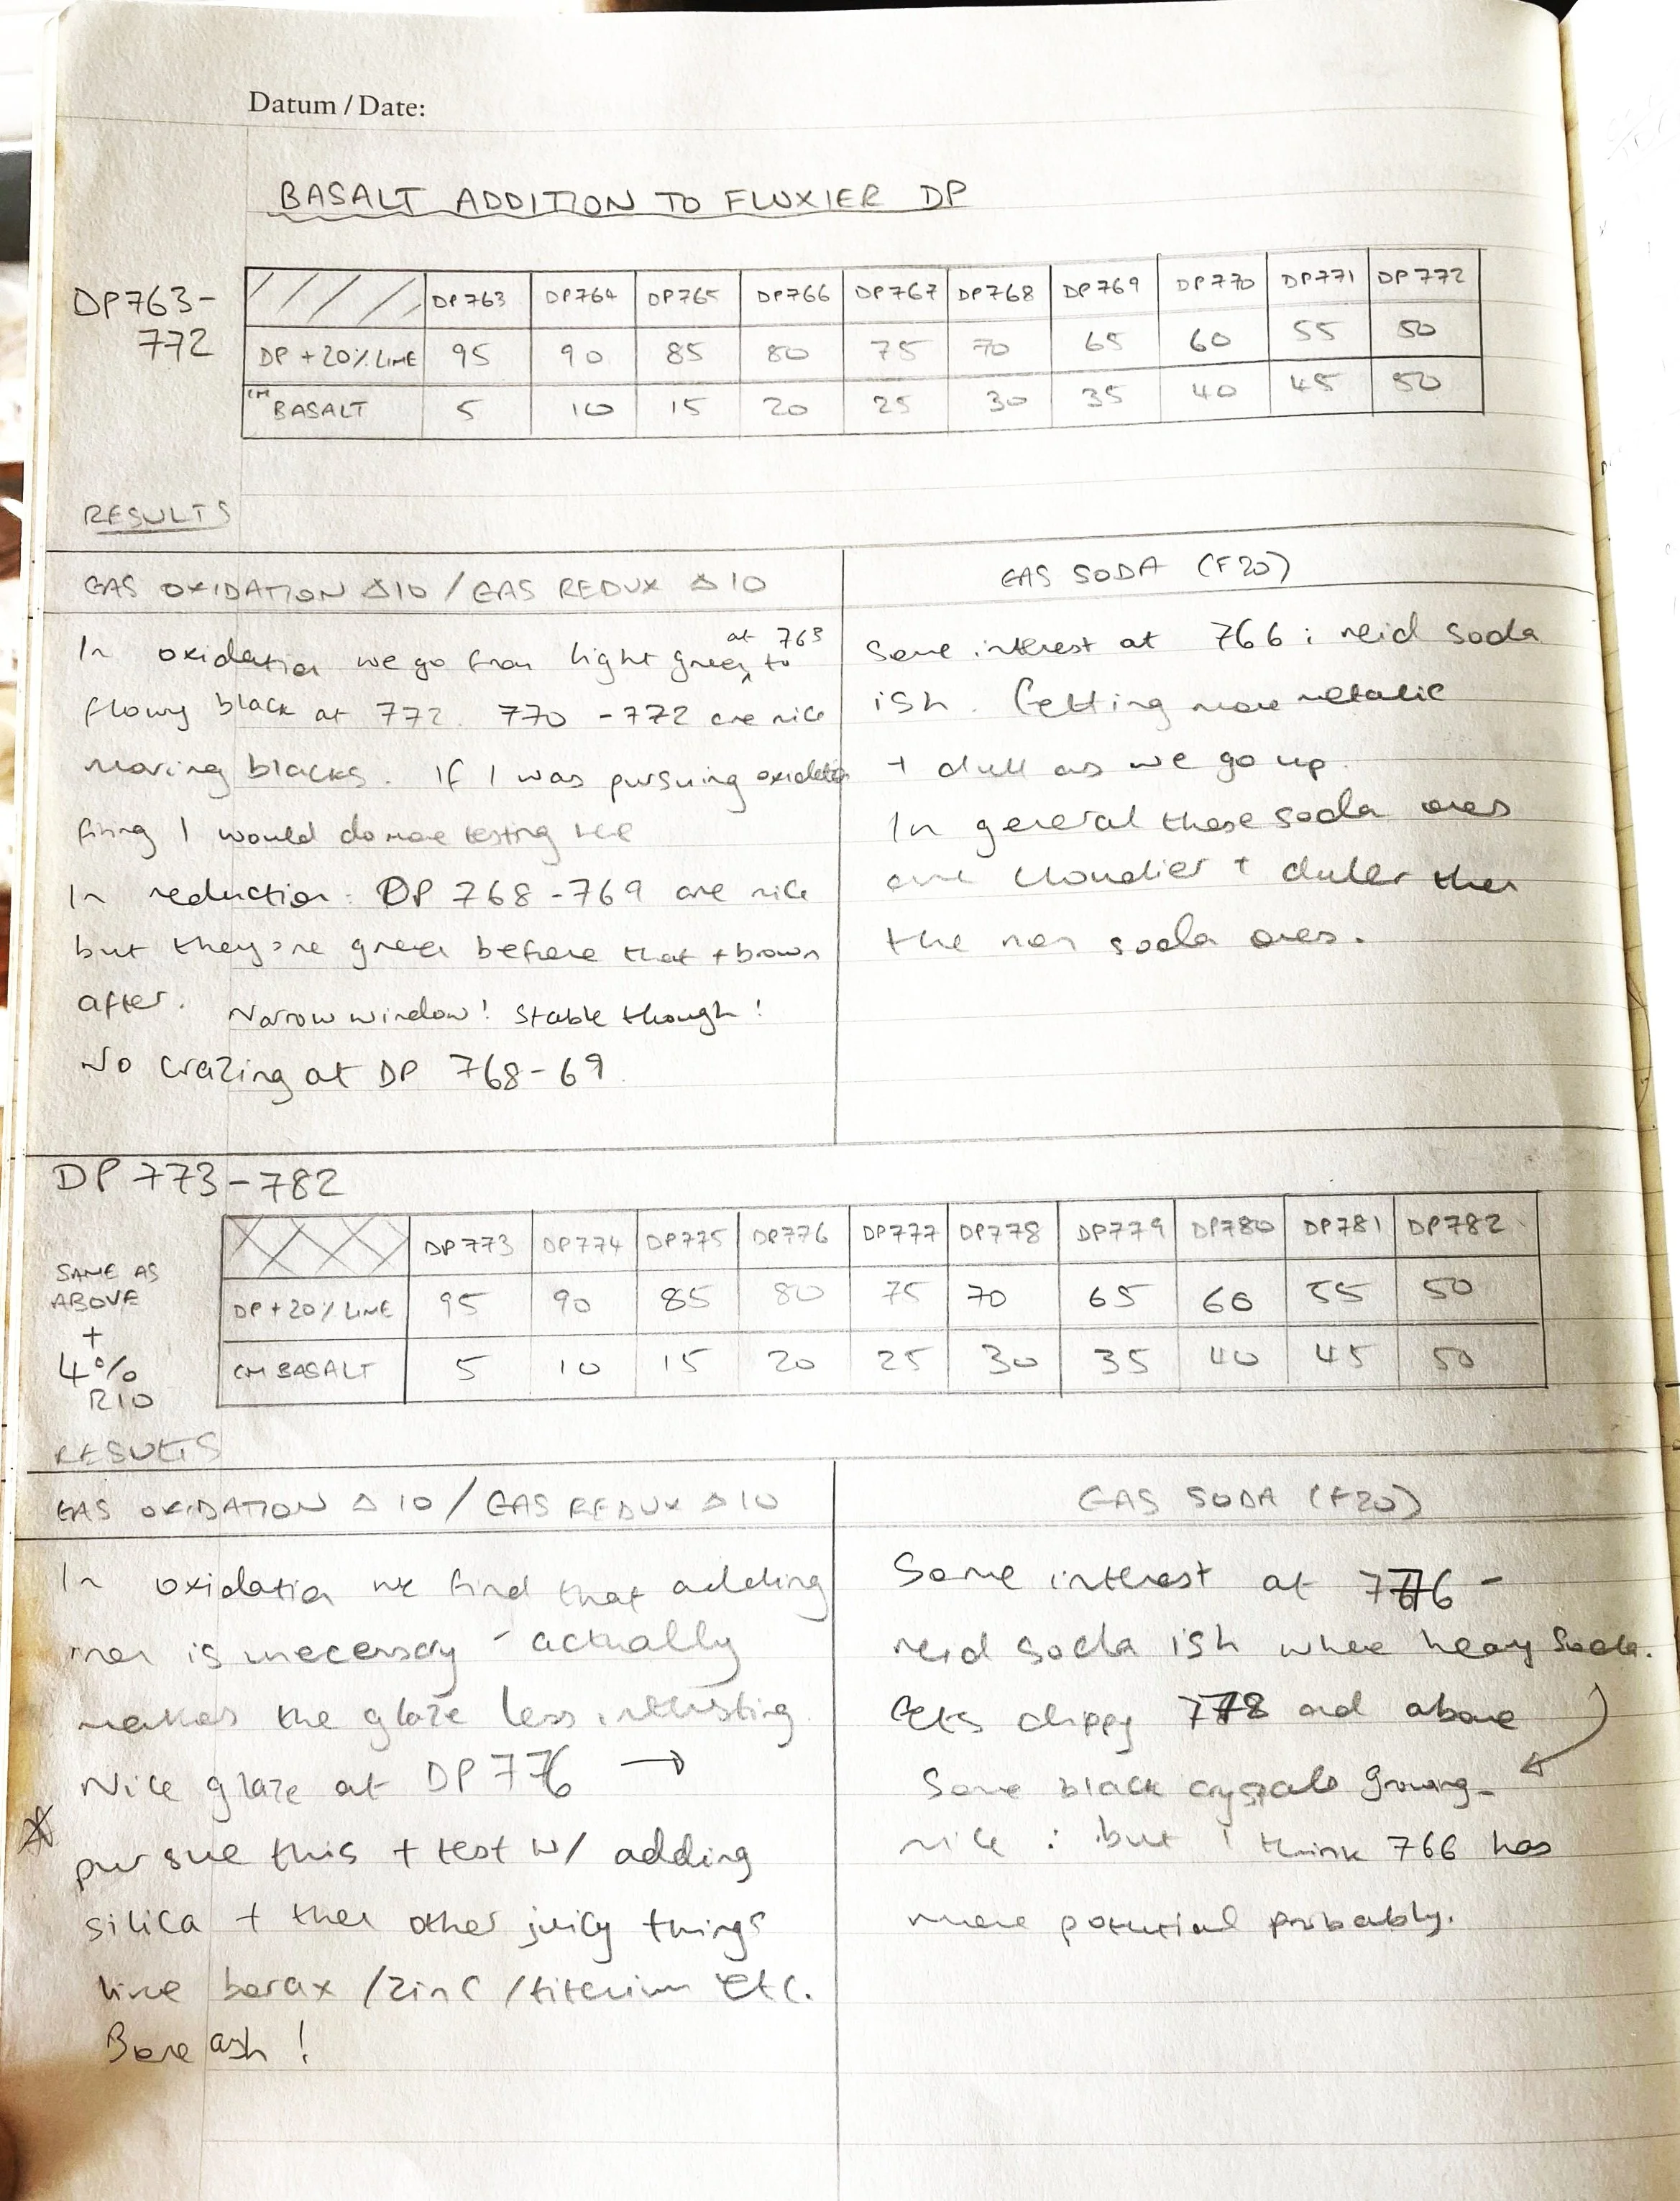 Datum / Date:
BASALT ADDITION TO FLUXIER DP
DP763-
772
DP763 DP764 DP765 DP766 DP767 DP768 DP769 DP770 DP771 DP772
DP + 20% LIME 95 90 85 80 75 70 65 60 55 50
CM BASALT 5 10 15 20 25 30 35 40 45 50
RESULTS
GAS OXIDATION Δ10 / GAS REDUX Δ10
In oxidation we go from light green at 763 to
flowy black at 772. 770 - 772 are nice
moving blacks. If I was pursuing oxidation
firing I would do more testing here
In reduction: DP 768 - 769 are nice
but they're green before that + brown
after. Narrow window! Stable though!
No crazing at DP 768-69
GAS SODA (F20)
Some interest at 766: reid soda
ish. Getting more metallic
+ dull as we go up.
In general these soda ones
are cloudier + duller then
the non soda ones.
DP 773-782
SAME AS
ABOVE
+
4%
RIO
DP773 DP774 DP775 DP776 DP777 DP778 DP779 DP780 DP781 DP782
DP + 20% LIME 95 90 85 80 75 70 65 60 55 50
CM BASALT 5 10 15 20 25 30 35 40 45 50
RESULTS
GAS OXIDATION Δ10 / GAS REDUX Δ10
In oxidation we find that adding
iron is unecessary - actually
makes the glaze less interesting.
Nice glaze at DP776 →
pursue this + test w/ adding
silica + then other juicy things
like borax / zinc / titanium etc.
Bone ash!
GAS SODA (F20)
Some interest at 776 -
reid soda ish where heavy soda.
Gets drippy 778 and above
Some black crystals growing -
nice: but I think 766 has
more potential probably.